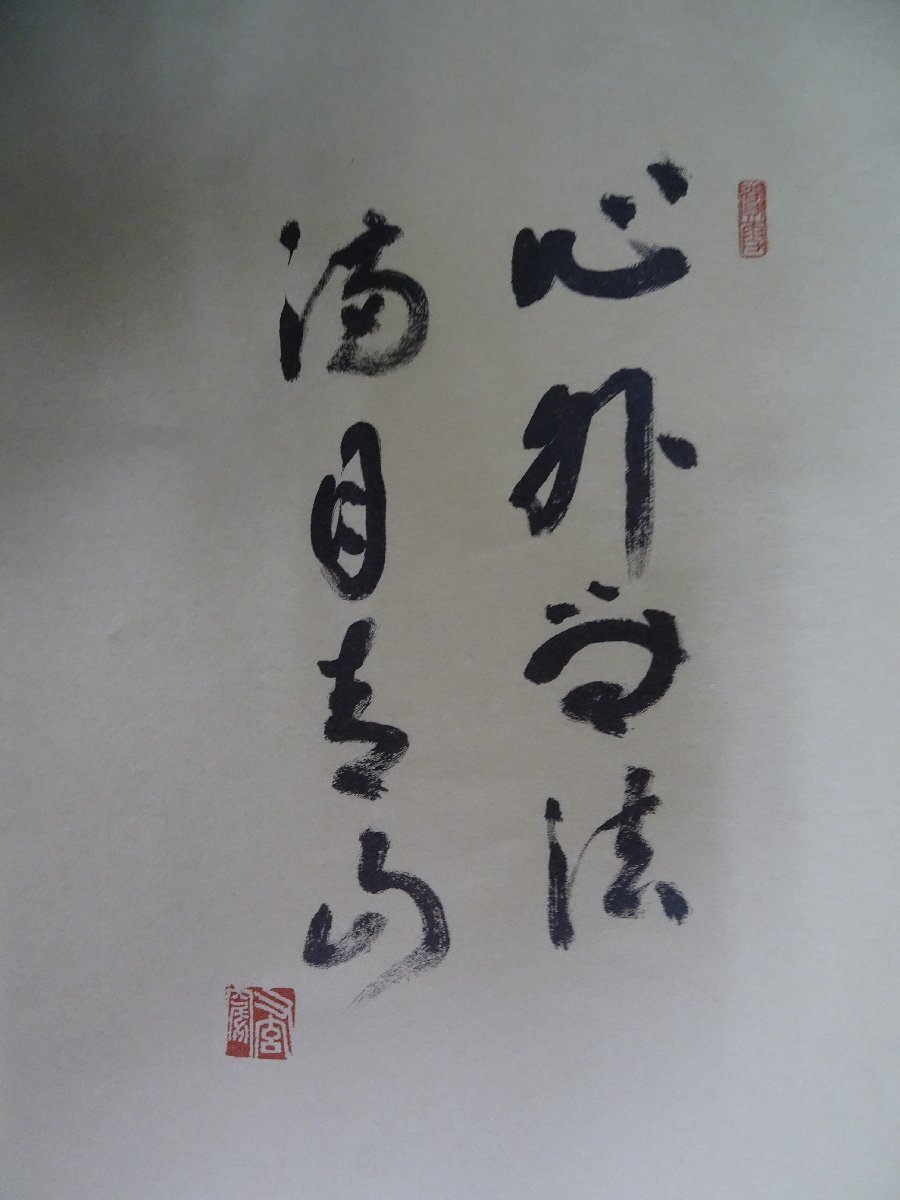 心外無法
満目青山